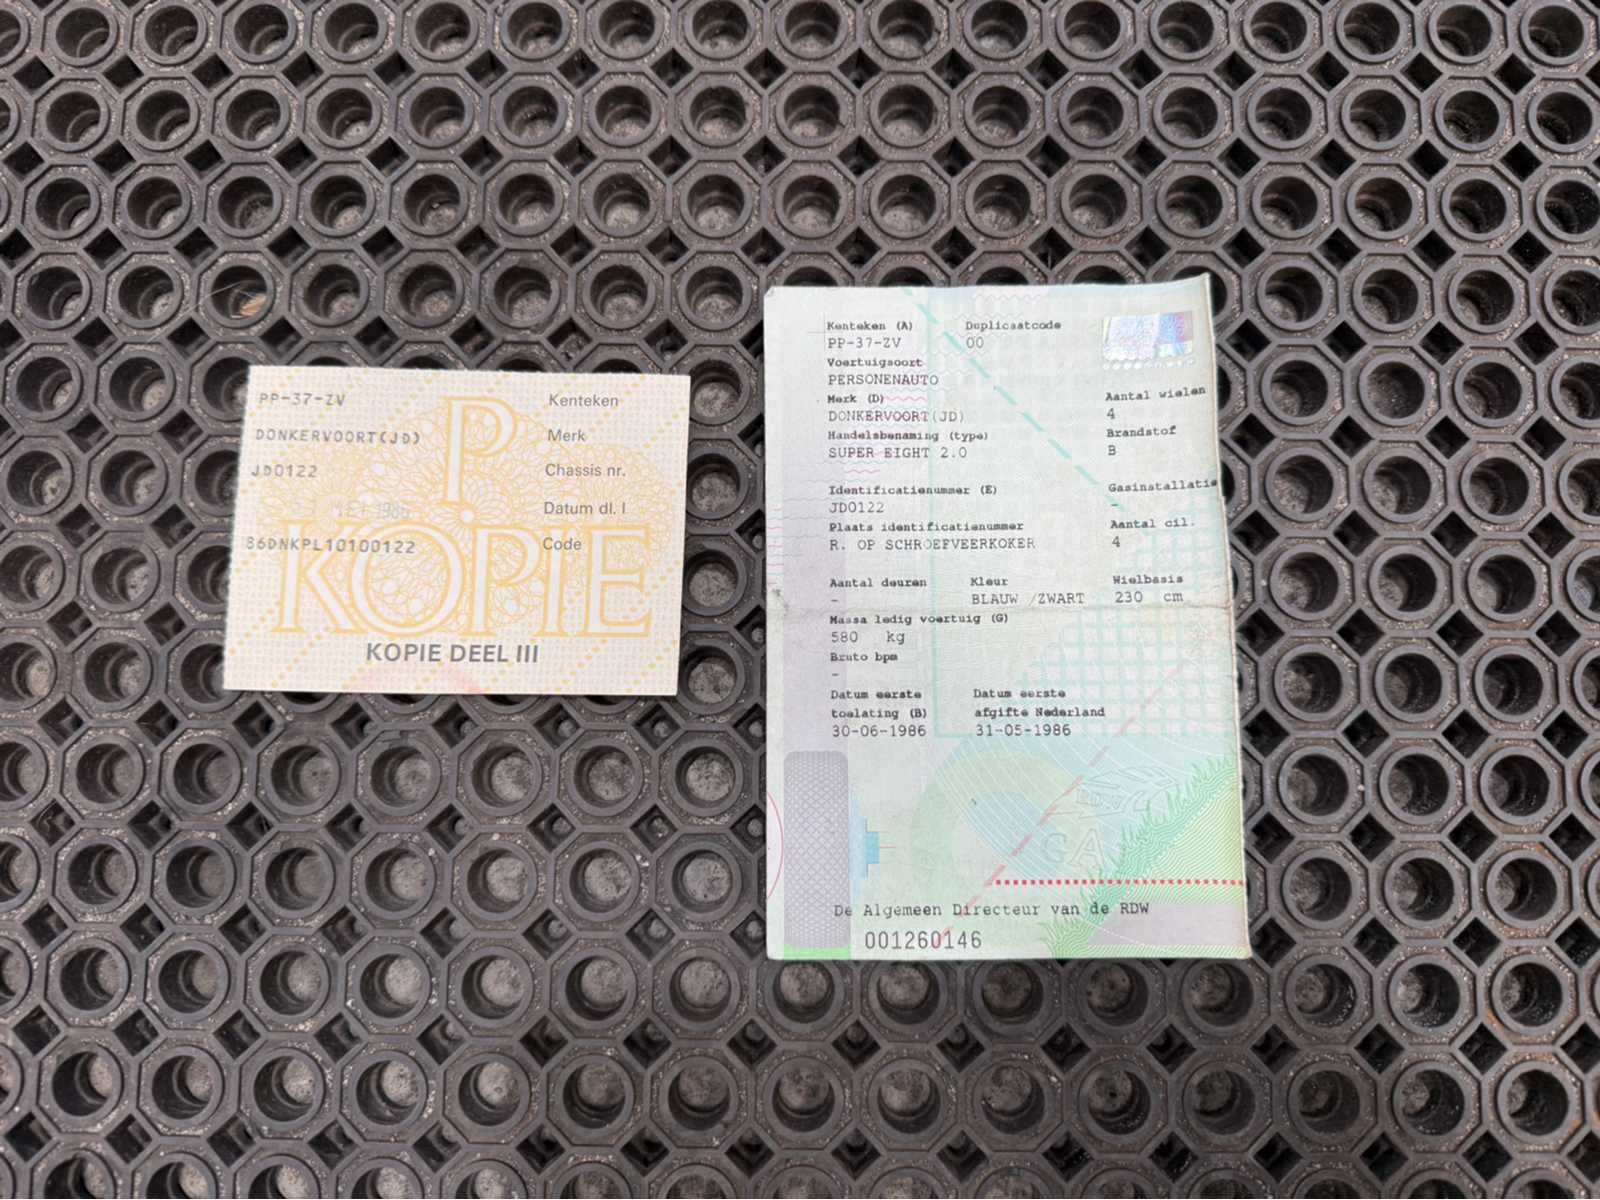 PP-37-ZV Kenteken
DONKERVOORT(JD) Merk
JD0122 Chassis nr.
1986 Datum dl. I
86DNKPL10100122 Code
P
KOPIE
KOPIE DEEL III
Kenteken (A) Duplicaatcode
PP-37-ZV 00
Voertuigsoort
PERSONENAUTO
Merk (D) Aantal wielen
DONKERVOORT(JD) 4
Handelsbenaming (type) Brandstof
SUPER EIGHT 2.0 B
Identificatienummer (E) Gasinstallatie
JD0122 -
Plaats identificatienummer Aantal cil.
R. OP SCHROEFVEERKOKER 4
Aantal deuren Kleur Wielbasis
- BLAUW /ZWART 230 cm
Massa ledig voertuig (G)
580 kg
Bruto bpm
-
Datum eerste Datum eerste
toelating (B) afgifte Nederland
30-06-1986 31-05-1986
De Algemeen Directeur van de RDW
001260146